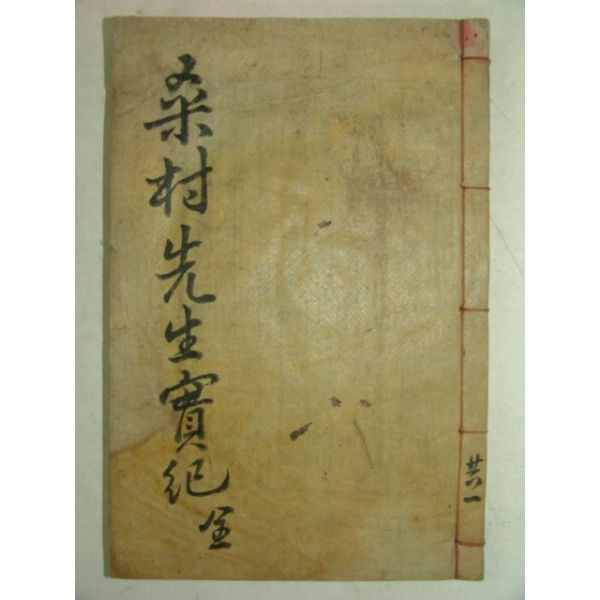 桒村先生實紀 全
共一